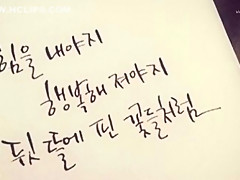 힘을 내야지
행복해 져야지
뒷 뜰에 핀 꽃들처럼